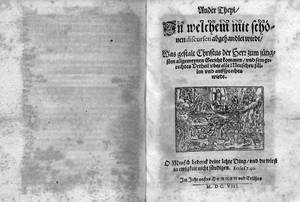 Ander Theyl/
In welchem mit schö-
nen discursen abgehandlet wirdt/
Was gestalt Christus der Herr zum jüng-
sten allgemeynen Gericht kommen/ und sein ge-
rechtes Urtheil uber alle Menschen fäl-
len und außsprechen
wirdt.
O Mensch bedenck deine letzte Ding/ und du wirst
in ewigkeit nicht sündigen. Eccles. 7.40.
Im Jahr unsers
M. DC. VIII.